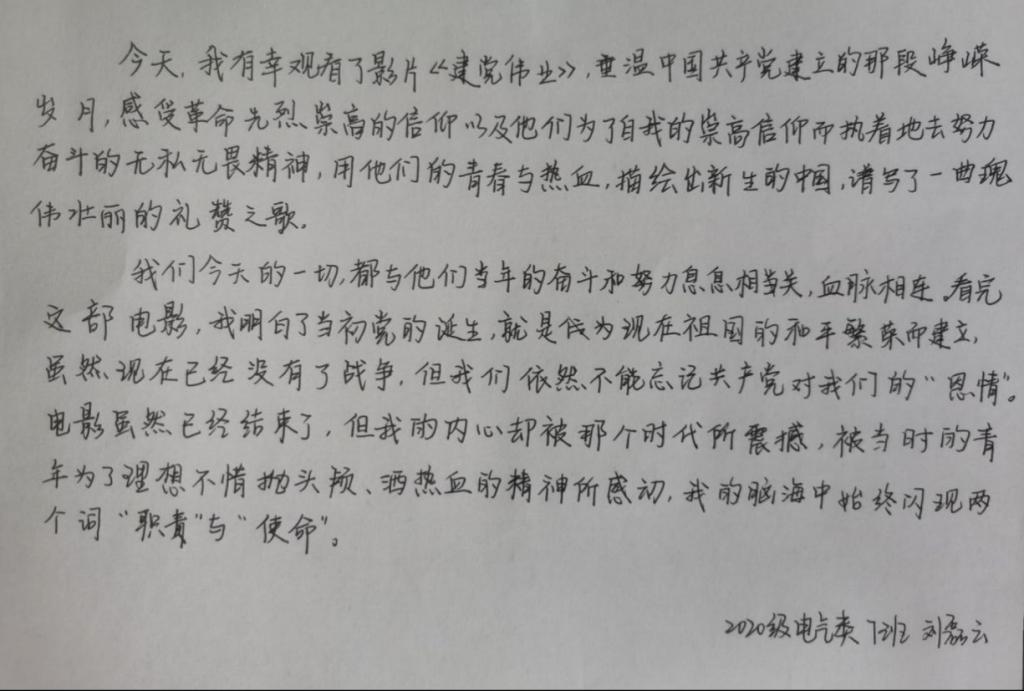 今天,我有幸观看了影片《建党伟业》,重温中国共产党建立的那段峥嵘
岁月,感受革命先烈崇高的信仰以及他们为了自我的崇高信仰而执着地去努力
奋斗的无私无畏精神,用他们的青春与热血,描绘出新生的中国,谱写了一曲瑰
伟壮丽的礼赞之歌.
我们今天的一切,都与他们当年的奋斗和努力息息相关,血脉相连。看完
这部电影,我明白了当初党的诞生,就是仅为现在祖国的和平繁荣而建立,
虽然现在已经没有了战争,但我们依然不能忘记共产党对我们的“恩情”。
电影虽然已经结束了,但我的内心却被那个时代所震撼,被当时的青
年为了理想不惜抛头颅、洒热血的精神所感动,我的脑海中始终闪现两
个词“职责”与“使命”。
2020级电气类 7班 刘磊云